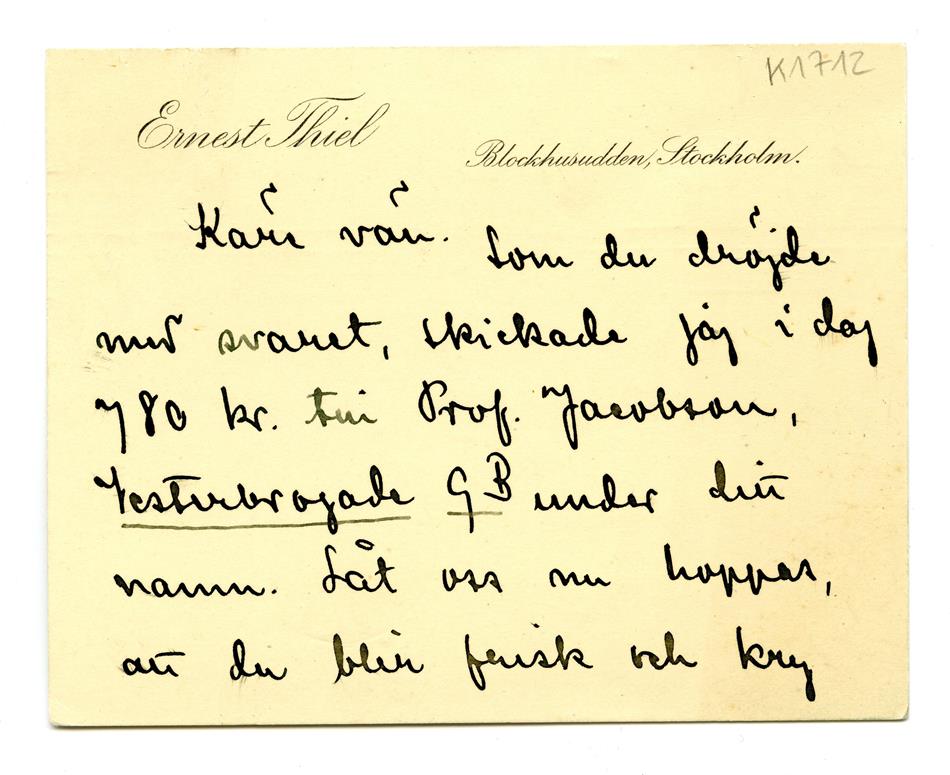 K1712
Ernest Thiel
Blockhusudden, Stockholm.
Käre vän. Som du dröjde
med svaret, skickade jag i dag
780 kr. till Prof. Jacobson,
Vesterbrogade 9 B under ditt
namn. Låt oss nu hoppas,
att du blir frisk och kry